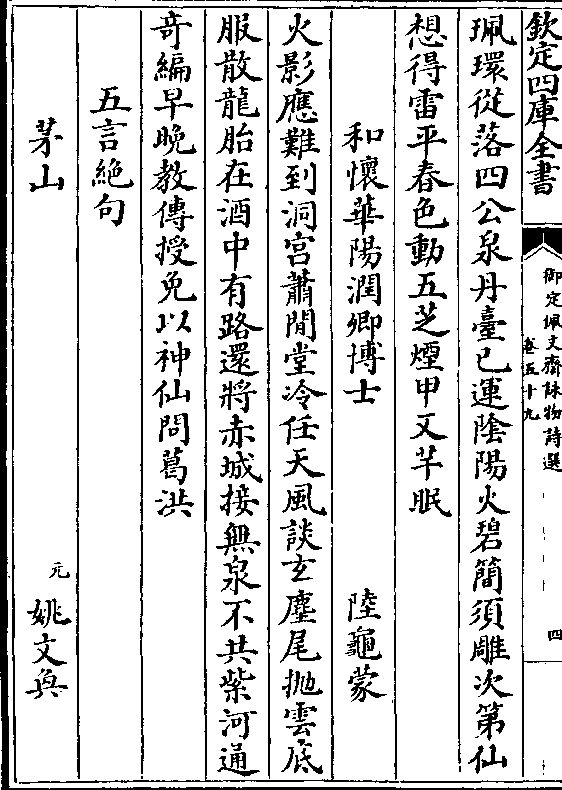 欽定四庫全書
御定佩文齋詠物詩選
卷五十九
四
珮環從落四公泉丹臺已運陰陽火碧簡須雕次第仙
想得雷平春色動五芝煙甲又芊眠
和懷華陽潤卿博士 陸龜蒙
火影應難到洞宮蕭閒堂冷任天風談玄麈尾拋雲底
服散龍胎在酒中有路還將赤城接無泉不共紫河通
奇編早晚教傳授免以神仙問葛洪
五言絶句
茅山 元 姚文奐